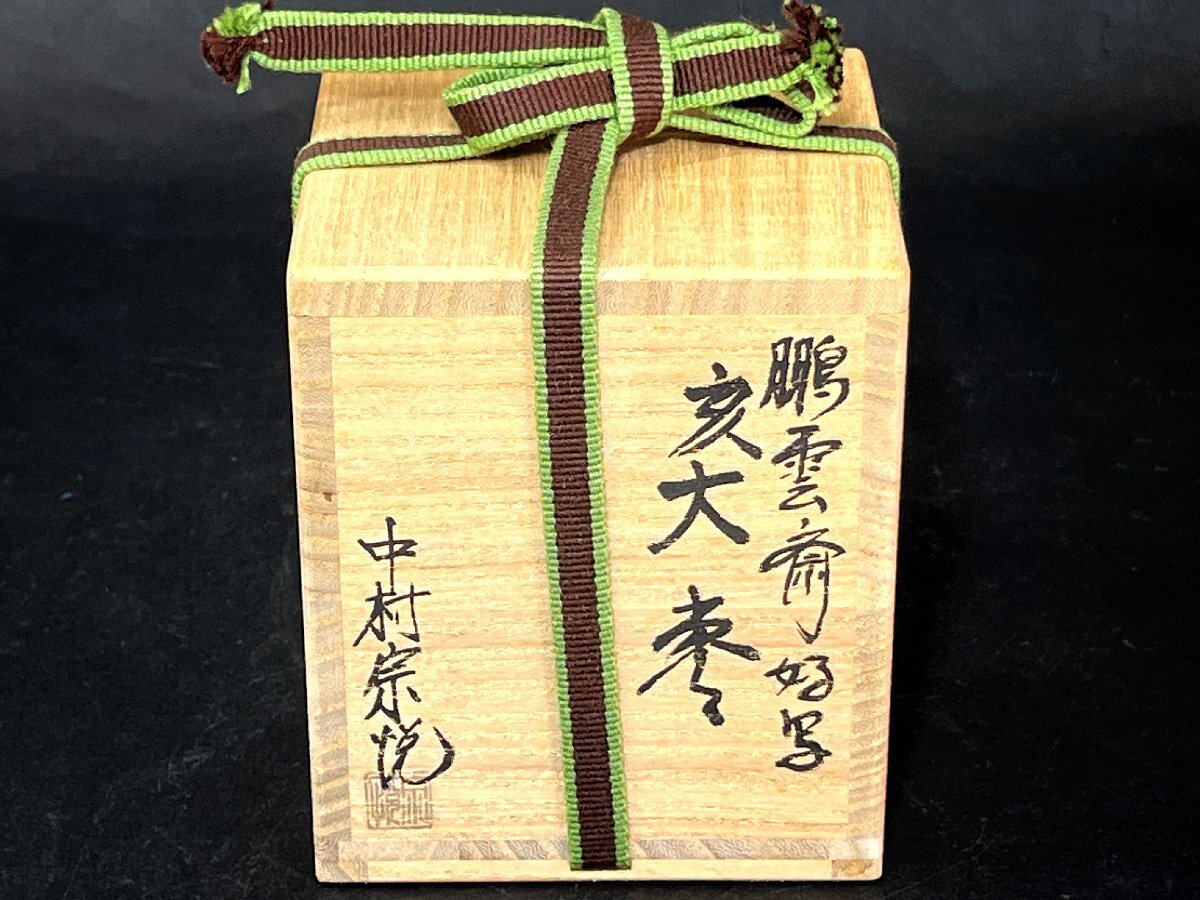 鵬雲斎好写
亥大棗
中村宗悦